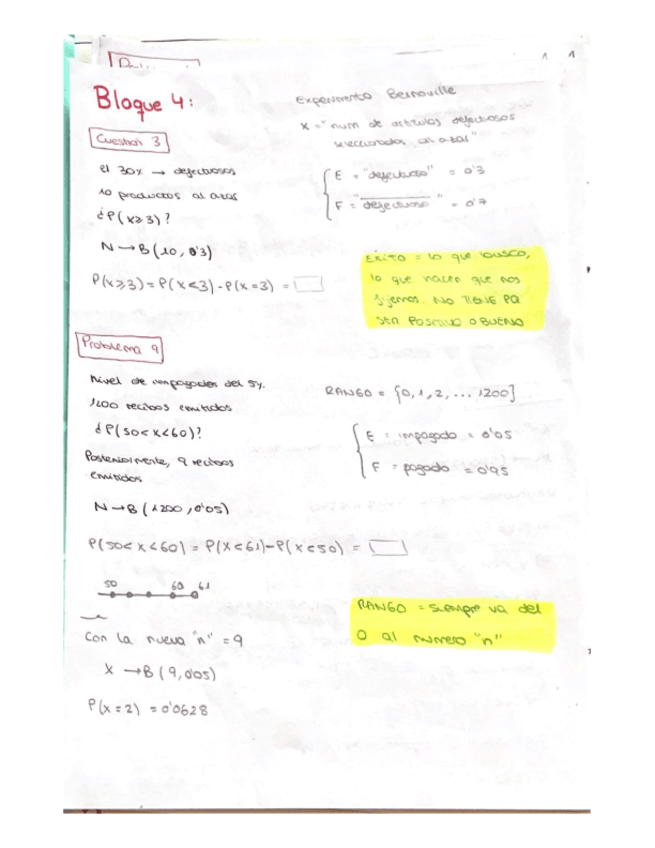 Bloque 4:
Cuestión 3
el 30% → defectuosos
10 productos al azar
¿P(x≥3)?
N→B(10, 0'3)
P(x≥3) = P(x<3) - P(x=3) =
Experimento Bernouille
X = "num de artículos defectuosos
seleccionados al azar"
E = "defectuoso" = 0'3
F = "defectuoso" = 0'7
EXITO = lo que busco,
lo que hacen que nos
fijemos. NO TIENE PQ
SER POSITIVO O BUENO
Problema 9
Nivel de impagados del 5%.
1200 recibos emitidos
¿P(50<x<60)?
Posteriormente, 9 recibos
emitidos
N→B(1200, 0'05)
RANGO = {0, 1, 2, ... 1200}
E = impagado = 0'05
F = pagado = 0'95
P(50<x<60) = P(x<61) - P(x<50) =
50 60 61
Con la nueva "n" = 9
X →B(9, 0'05)
P(x=2) = 0'0628
RANGO = siempre va del
0 al número "n"